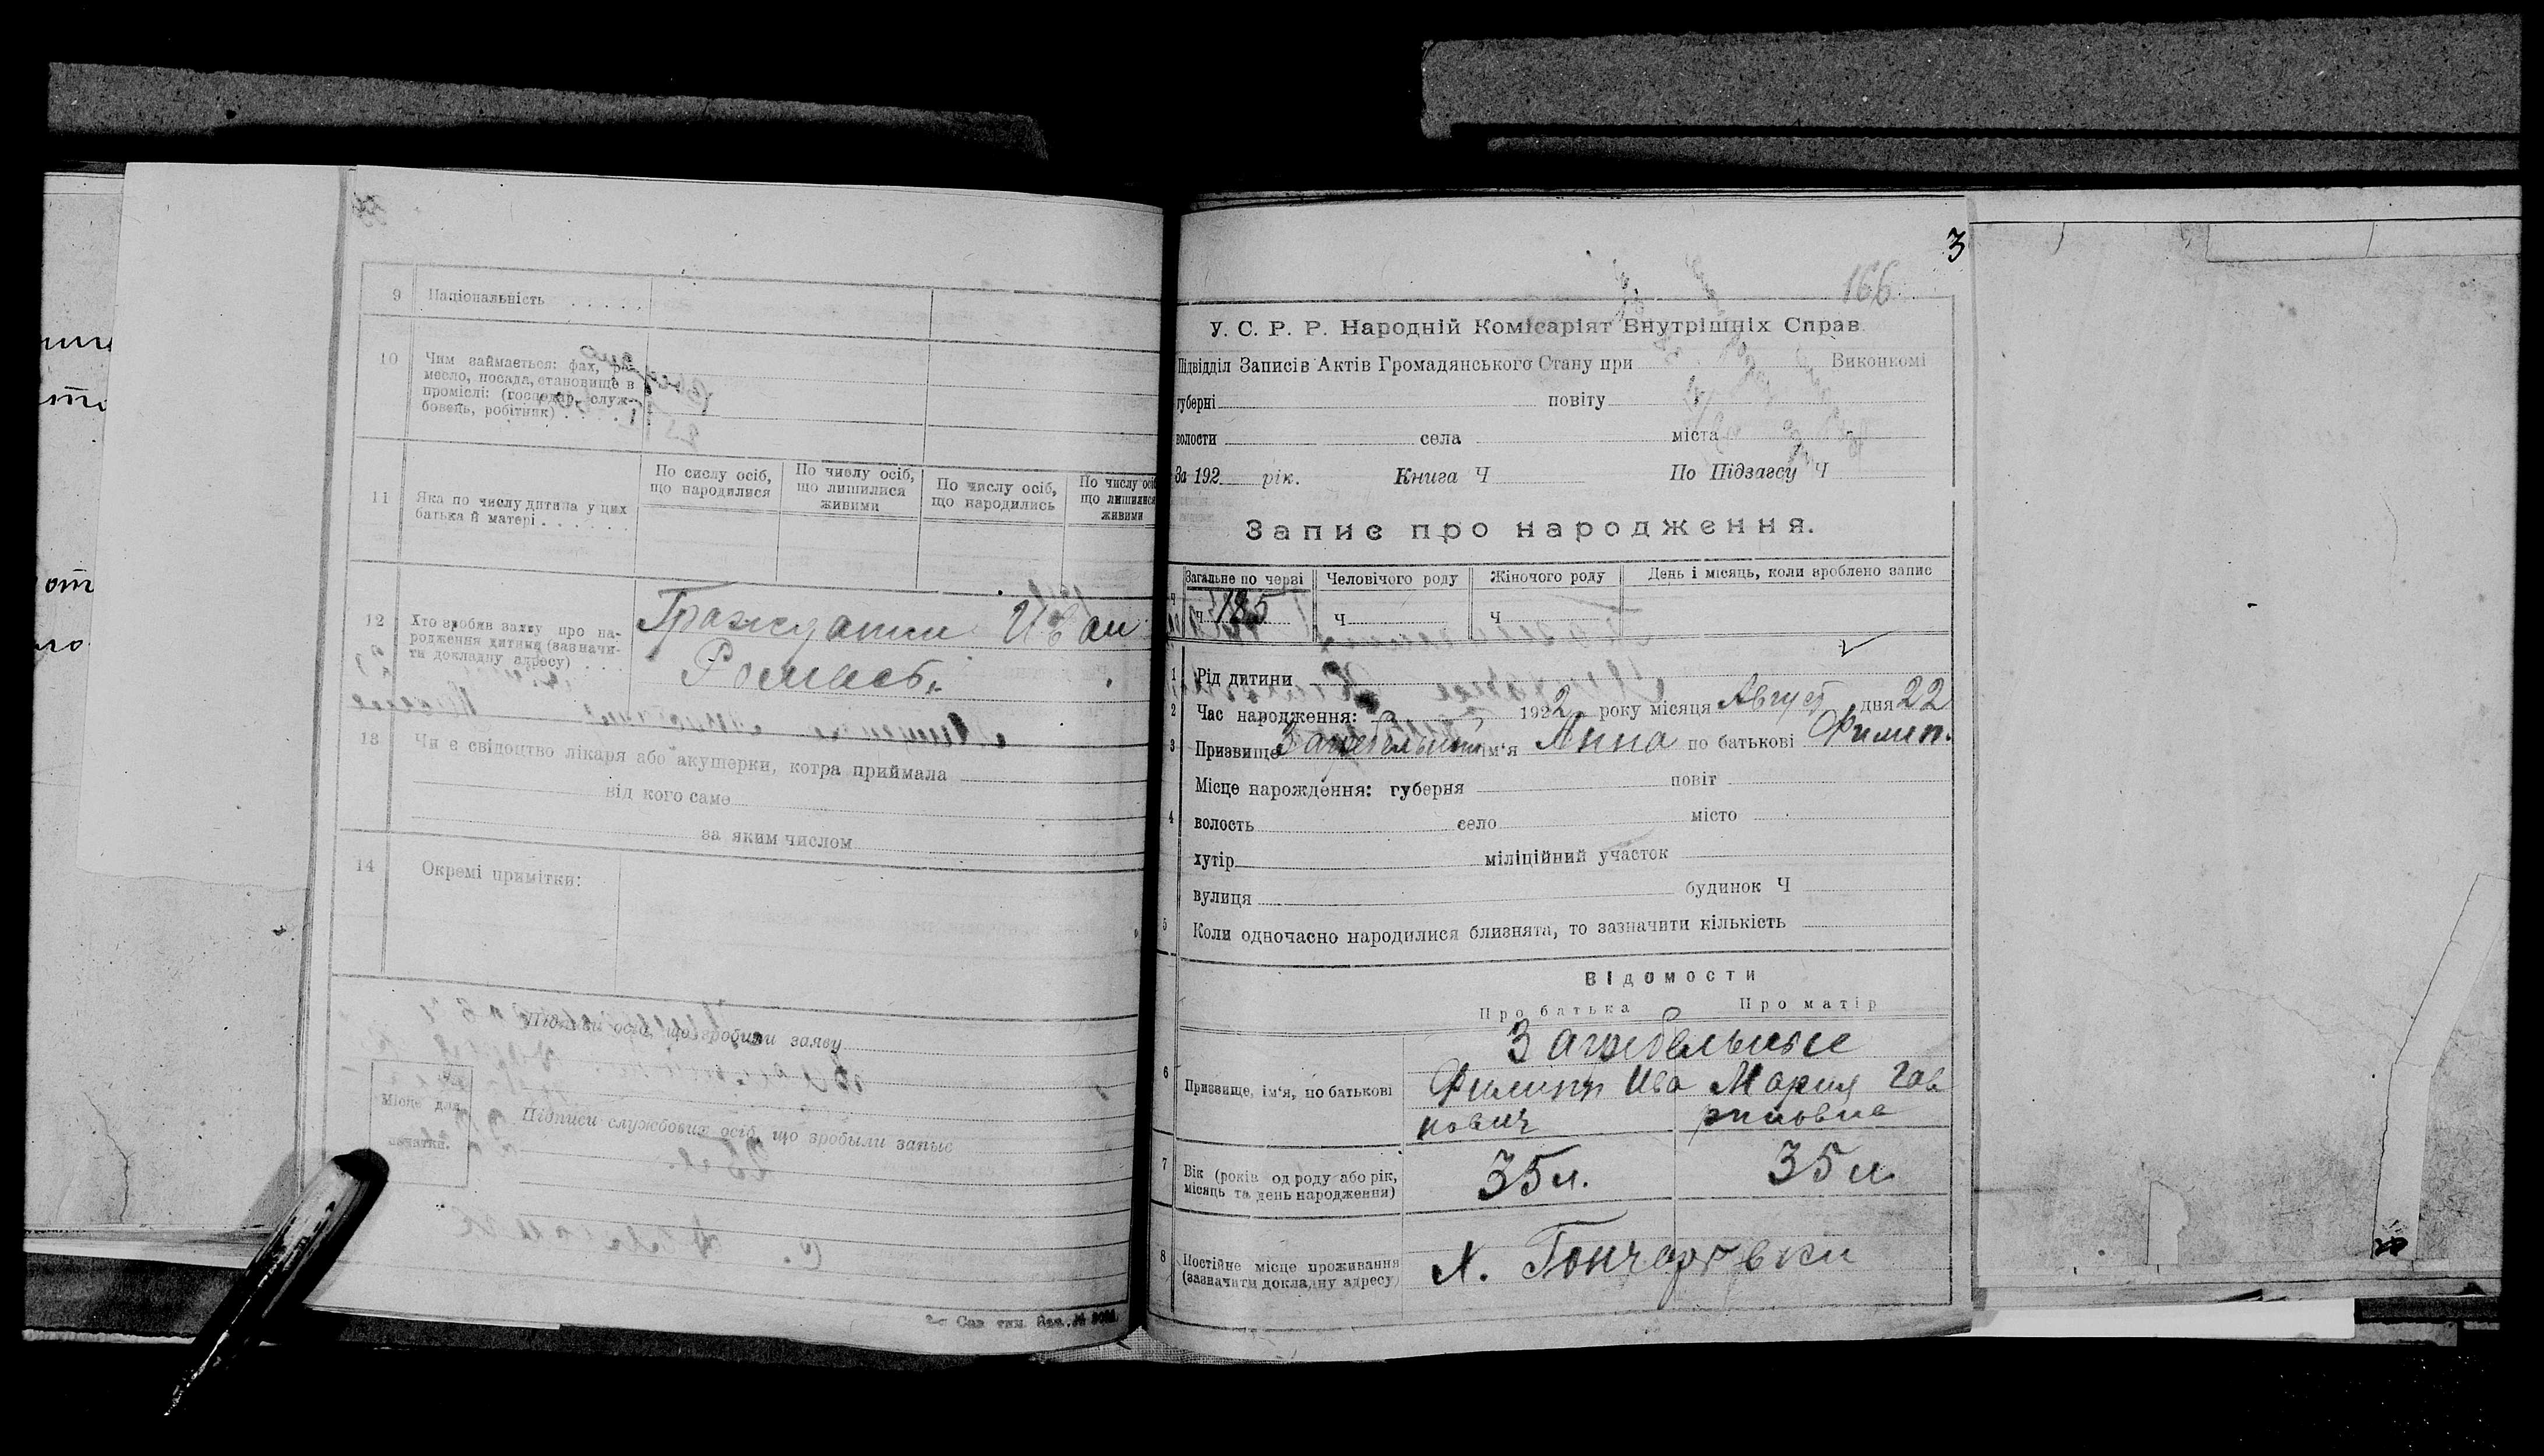 9 Національність
10 Чим займається: фах, ре-
месло, посада, становище в
промислі: (господар, служ-
бовець, робітник)
11 Яка по числу дитина у цих
батька й матері
По сислу осіб,
що народилися
По числу осіб,
що лишилися
живими
По числу осіб,
що народились
По числу осіб
що лишилися
живими
12 Хто зробив заяву про на-
родження дитини (зазначи-
ти докладну адресу)
Гражданин Иван
13 Чи є свідоцтво лікаря або акушерки, котра приймала
від кого саме
за яким числом
14 Окремі примітки:
Підписи осіб, що зробили заяву
Місце для
печатки.
Підписи службових осіб, що зробыли запыс
3
166
У. С. Р. Р. Народній Комісаріят Внутрішніх Справ
Підвідділ Записів Актів Громадянського Стану при Виконкомі
губерні повіту
волости села міста
За 192 рік. Книга Ч По Підзагсу Ч
Запис про народження.
Загальне по черзі Человічого роду Жіночого роду День і місяць, коли зроблено запис
Ч 185 Ч Ч
1 Рід дитини
2 Час народження: 1922 року місяця Август дня 22
3 Призвище Загребельный ім'я Анна по батькові Филип.
4 Місце нарождення: губерня повіт
волость село місто
хутір міліційний участок
вулиця будинок Ч
5 Коли одночасно народилися близнята, то зазначити кількість
Відомости
Про батька Про матір
Загребельные
6 Призвище, ім'я, по батькові Филипп Ива Мария Гав
нович риловна
7 Вік (років од роду або рік,
місяць та день народження) 35 л. 35 л.
8 Постійне місце проживання
(зазначити докладну адресу) х. Гончаровки